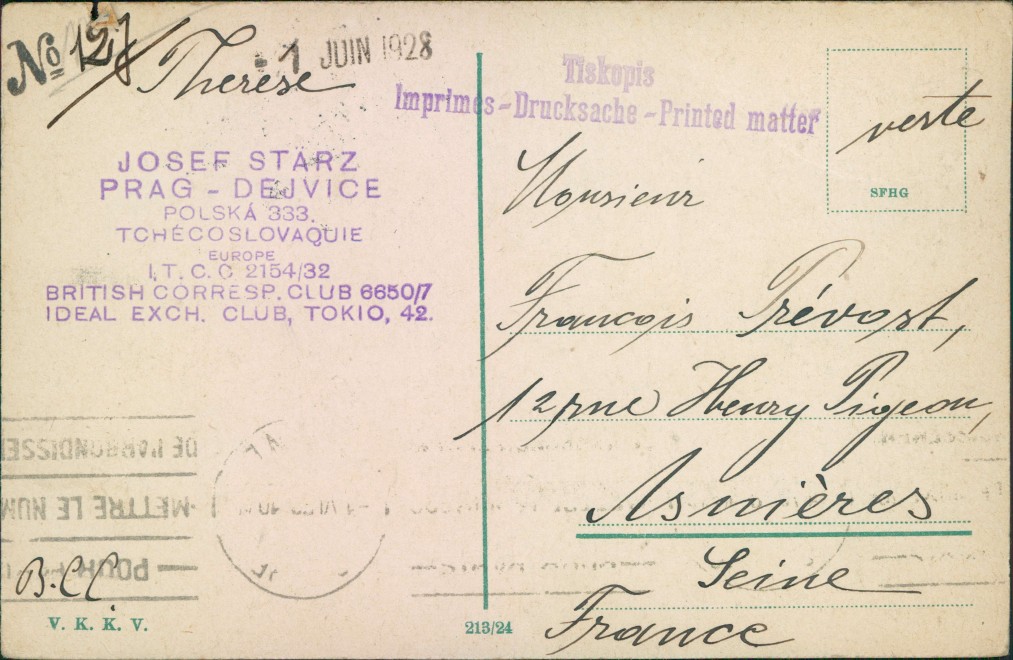 No 127
Therese
-1 JUIN 1928
Tiskopis
Imprimes-Drucksache-Printed matter
verste
SFHG
JOSEF STARZ
PRAG - DEJVICE
POLSKÁ 333.
TCHÉCOSLOVAQUIE
EUROPE
I.T.C.C 2154/32
BRITISH CORRESP. CLUB 6650/7
IDEAL EXCH. CLUB, TOKIO, 42.
Monsieur
François Prévost,
12 rue Henry Pigeon,
Asnières
Seine
France
METTRE LE NUM
POUR
B.CC
V. K. K. V.
213/24